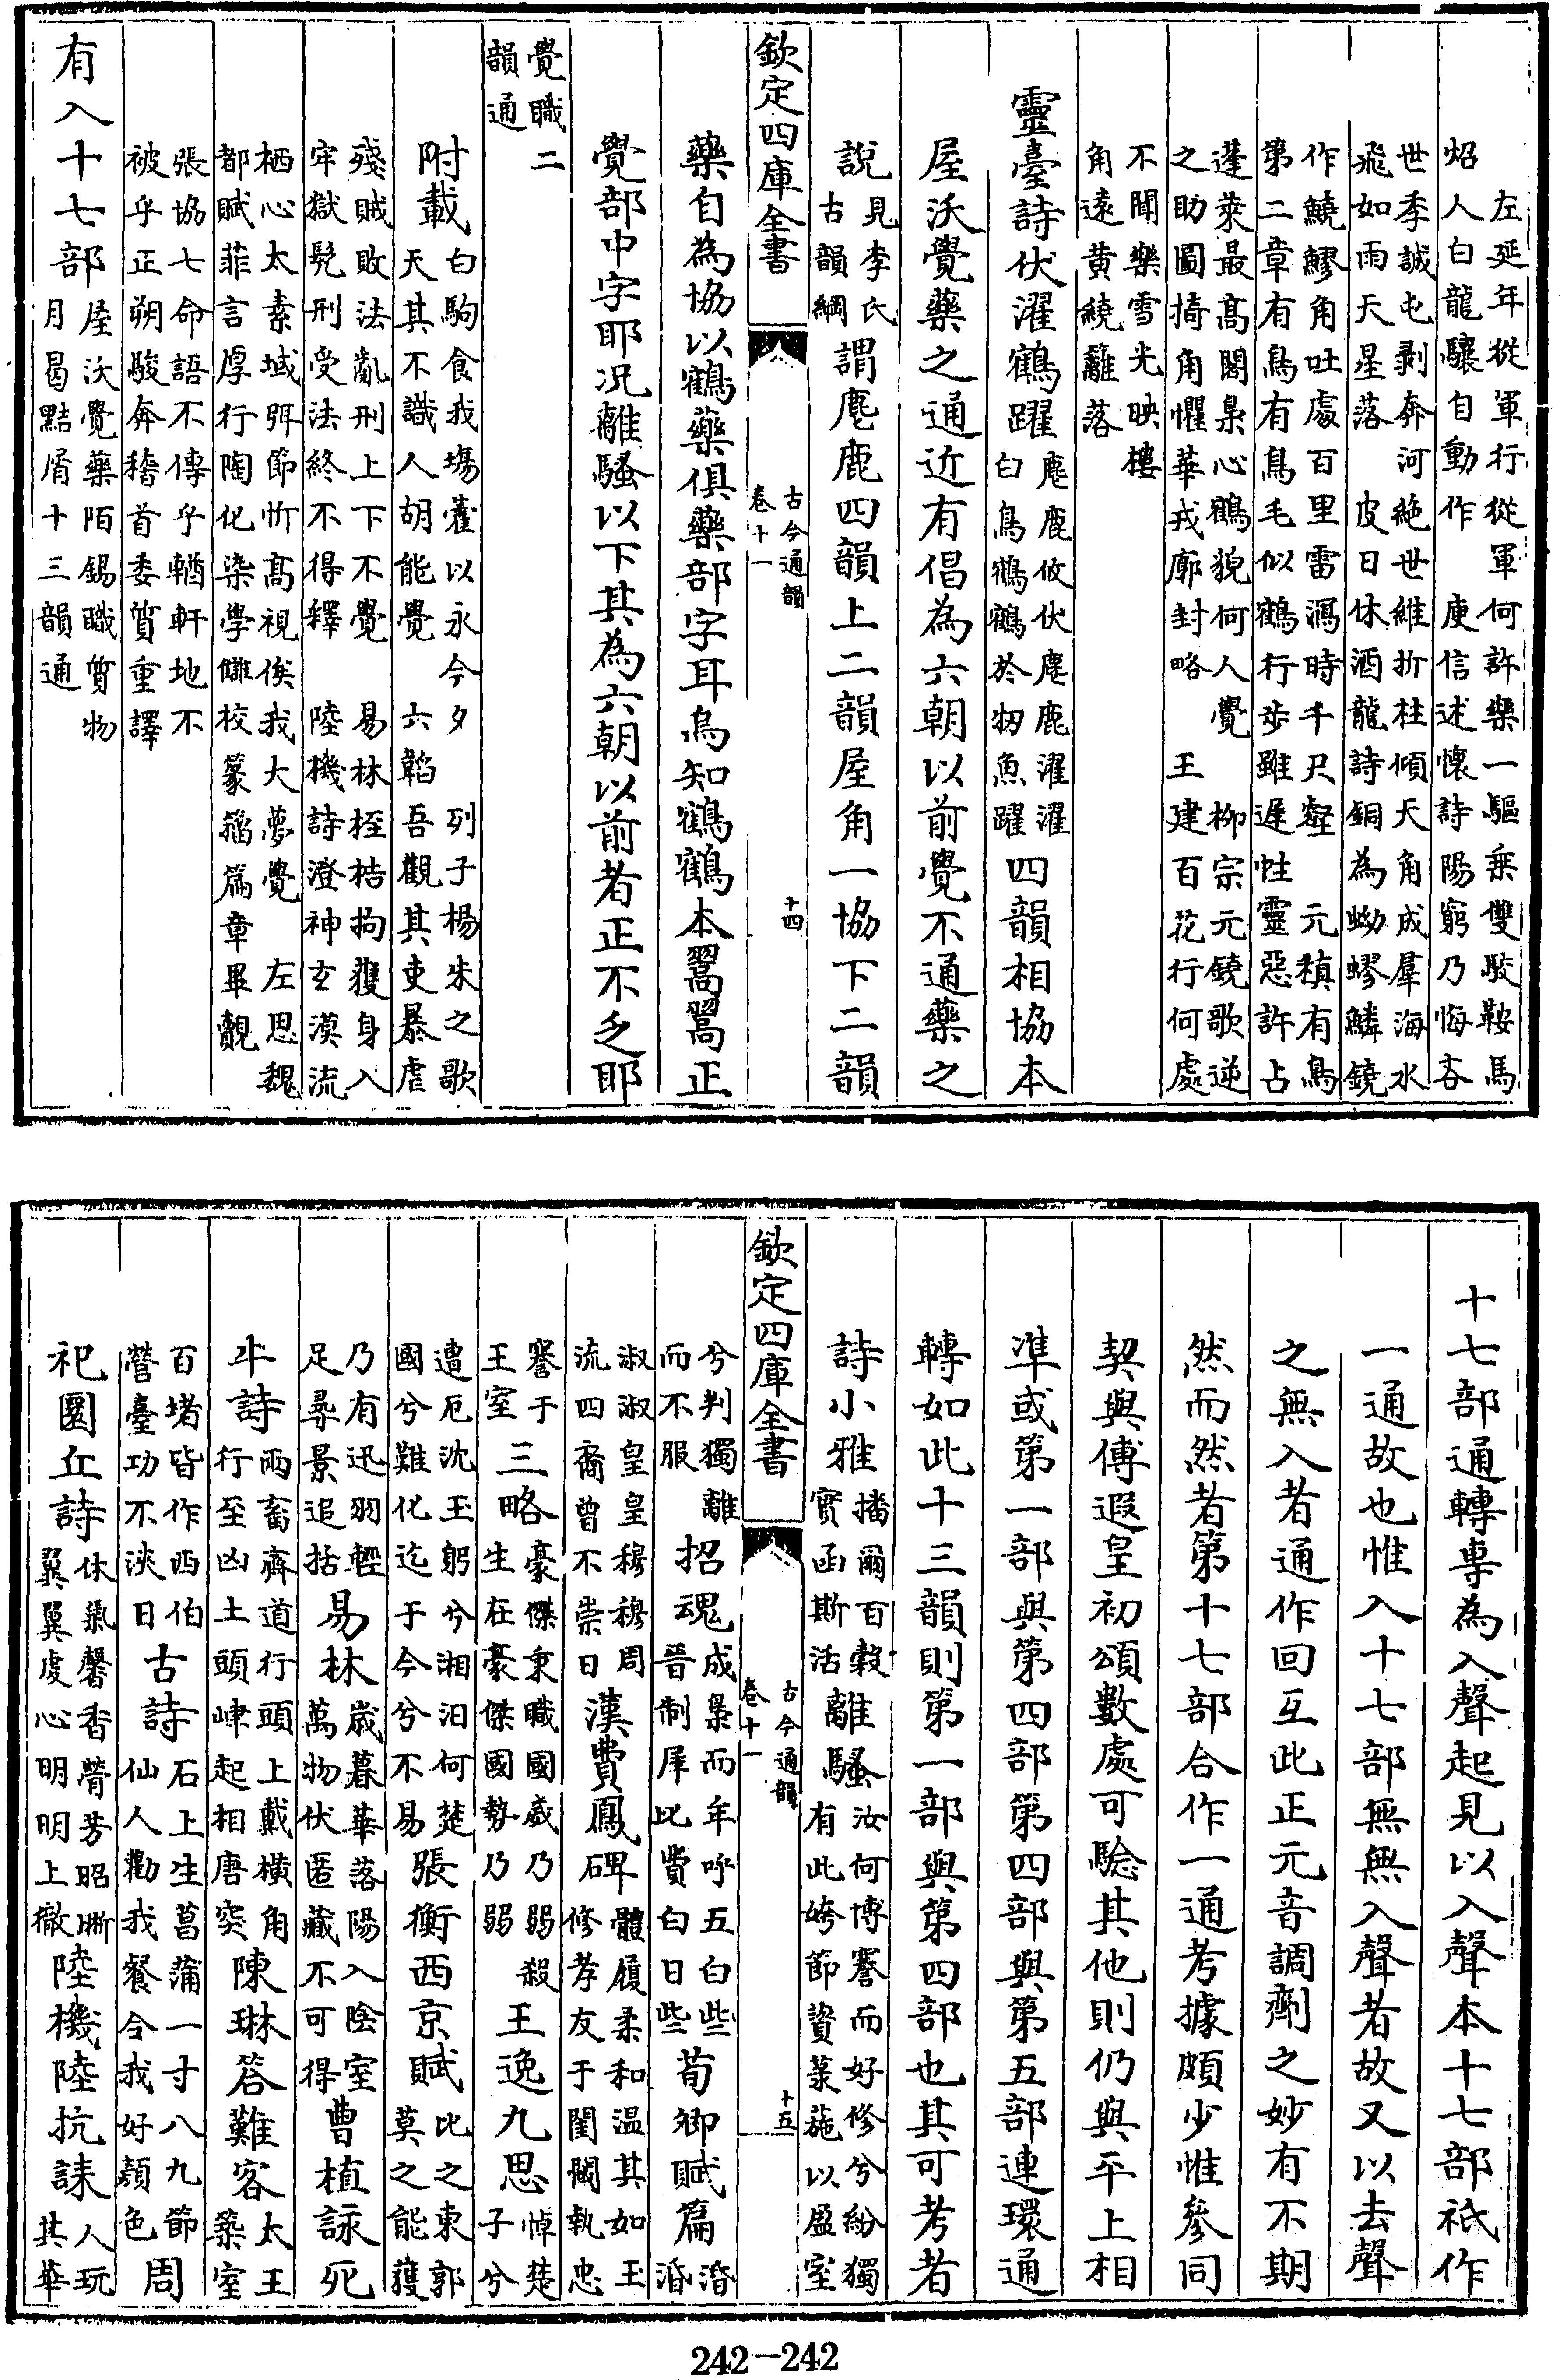 左延年從軍行從軍何許樂一驅乘雙駮鞍馬
炤人白龍驤自動作 庾信述懷詩陽窮乃悔吝
世季誠屯剥奔河絶世維折柱傾天角成羣海水
飛如雨天星落 皮日休酒龍詩銅為蚴蟉鱗鐃
作鱙鏐角吐處百里雷瀉時千尺壑 元稹有鳥
第二章有鳥有鳥毛似鶴行步雖遲性靈惡許占
蓬萊最高閣梟心鶴貌何人覺 柳宗元鐃歌逆
之助圖掎角懼華戎廓封略 王建百花行何處
不聞樂雪光映樓
角遠黄繞籬落
靈臺詩伏濯鶴躍麀鹿攸伏麀鹿濯濯白鳥鶴鶴於牣魚躍四韻相協本
屋沃覺藥之通近有倡為六朝以前覺不通藥之
說見李氏古韻綱謂麀鹿四韻上二韻屋角一協下二韻
欽定四庫全書 古今通韻 卷十一 十四
藥自為協以鶴藥俱藥部字耳烏知鶴鶴本翯翯正
覺部中字耶况離騷以下其為六朝以前者正不乏耶
覺職二韻通
附載白駒食我塲藿以永今夕 列子楊朱之歌天其不識人胡能覺 六韜吾觀其吏暴虐
殘賊敗法亂刑上下不覺 易林桎梏拘獲身入
牢獄髠刑受法終不得釋 陸機詩澄神玄漠流
栖心太素域弭節忻高視俟我大夢覺 左思魏
都賦菲言厚行陶化染學讎校篆籀篇章畢覿
張協七命語不傳乎輶軒地不
被乎正朔駿奔稽首委質重譯
有入十七部屋沃覺藥陌錫職質物月曷黠屑十三韻通
十七部通轉專為入聲起見以入聲本十七部祇作
一通故也惟入十七部無無入聲者故又以去聲
之無入者通作回互此正元音調劑之妙有不期
然而然者第十七部合作一通考據頗少惟參同
契與傅遐皇初頌數處可驗其他則仍與平上相
準或第一部與第四部第四部與第五部連環通
轉如此十三韻則第一部與第四部也其可考者
詩小雅播爾百穀實函斯活離騷汝何博謇而好修兮紛獨有此姱節薋菉葹以盈室
欽定四庫全書 古今通韻 卷十一 十五
兮判獨離而不服招魂成梟而牟呼五白些晉制犀比費白日些荀卿賦篇湣湣
淑淑皇皇穆穆周流四裔曾不崇日漢費鳳碑體履柔和温其如玉修孝友于閨閫執忠
謇于王室三略豪傑秉職國威乃弱殺生在豪傑國勢乃弱王逸九思悼楚子兮
遭厄沈玉躬兮湘汨何楚國兮難化迄于今兮不易張衡西京賦比之東郭莫之能獲
乃有迅羽輕足尋景追括易林歲暮華落陽入陰室萬物伏匿藏不可得曹植詠死
牛詩兩畜齊道行頭上戴橫角行至凶土頭𡶶起相唐突陳琳答難客太王築室
百堵皆作西伯營臺功不浹日古詩石上生菖蒲一寸八九節仙人勸我餐令我好顏色周
祀圜丘詩休氣馨香膋芳昭晰翼翼䖍心明明上徹陸機陸抗誄人玩其華
242-242